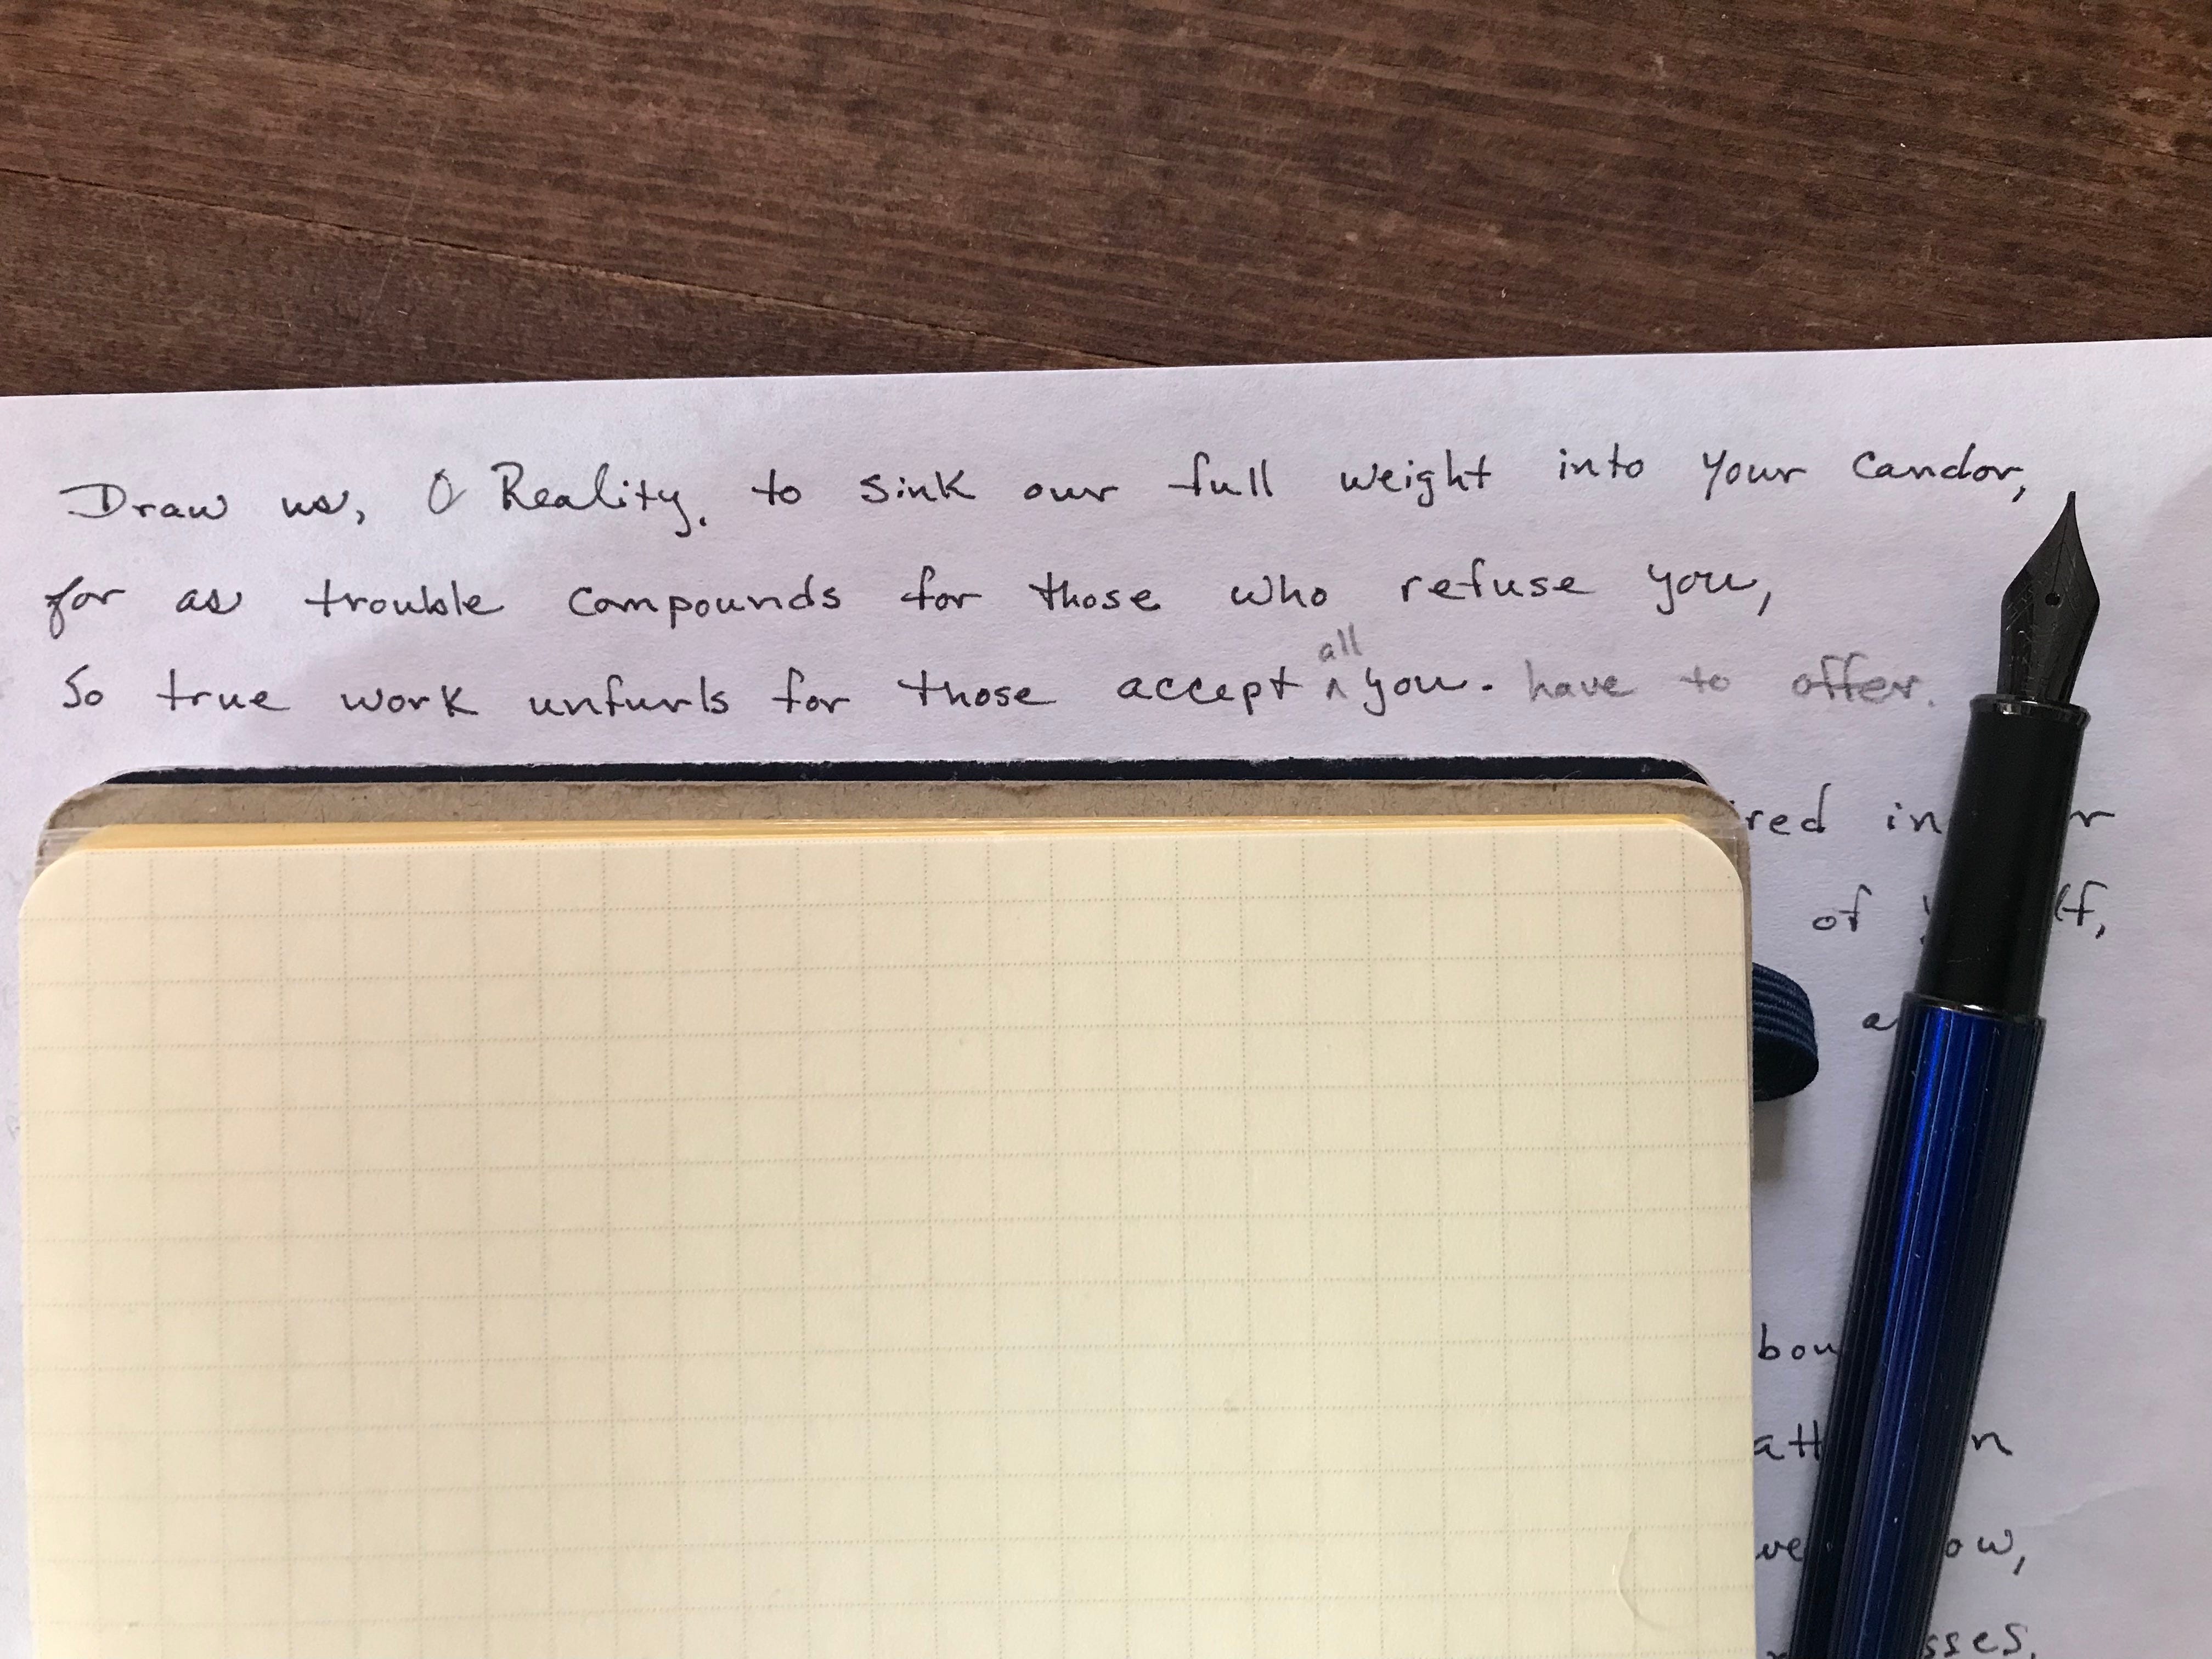 Draw us, O Reality, to sink our full weight into your candor,
for as trouble compounds for those who refuse you,
so true work unfurls for those accept ^all you. have to offer.
in
of